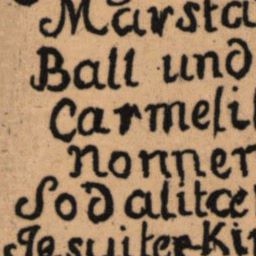 Marsta
Ball und
Carmeli
nonner
Sodalitæ
Jesuiter-Kir